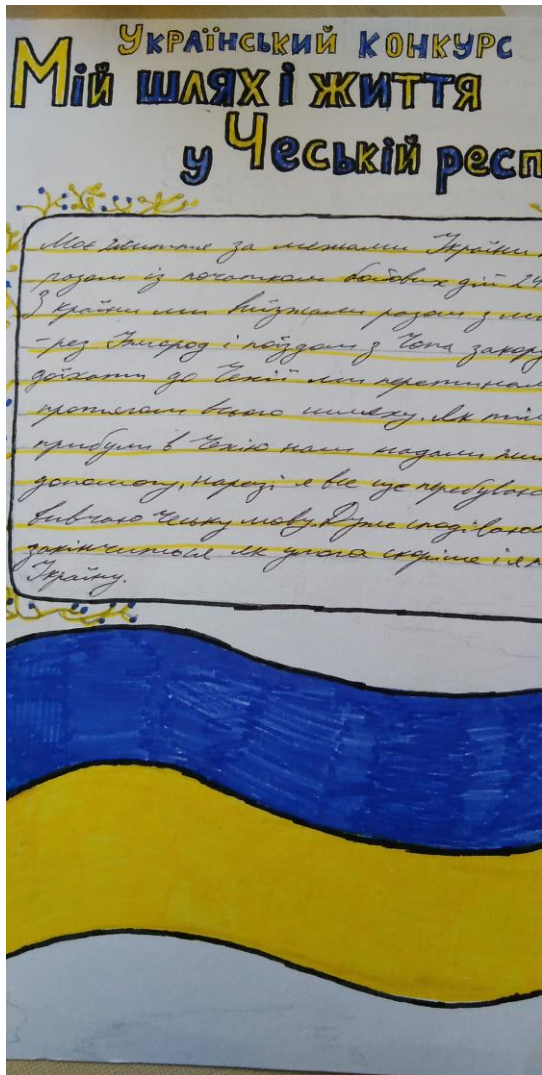 Український конкурс
Мій шлях і життя
у Чеській респ
Моє життя за межами України
разом із початком бойових дій 24
З країни ми виїжали разом з
-рез Ужгород і поїздом з Чопа закор
доїхати до Чехії ми перетинал
протягом всього шляху. Як тіль
прибули в Чехію нам надали
допомогу, наразі я все ще перебуваю
вивчаю чеську мову. Дуже сподіваюс
закінчиться як умога скоріше і я
Україну.